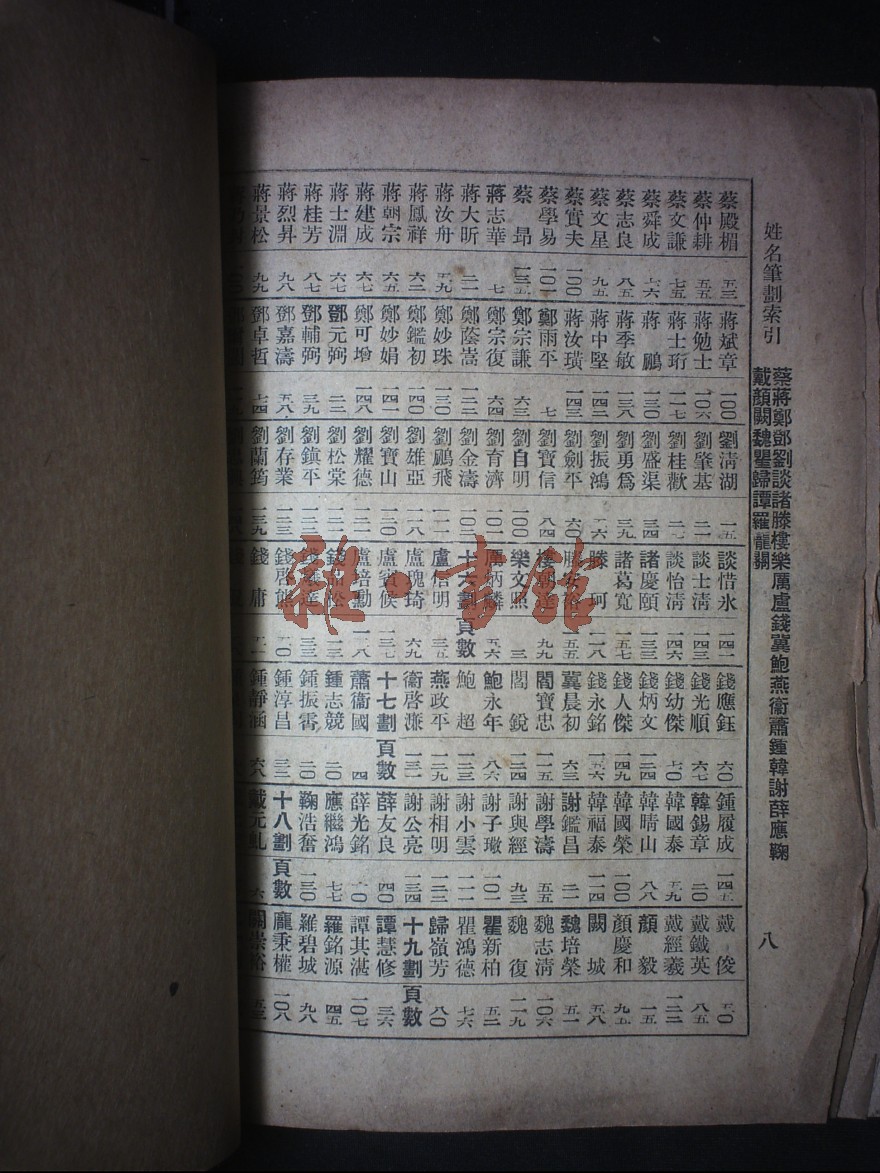 姓名筆劃索引
蔡蔣鄭鄧劉談諸滕樓樂厲盧錢冀鮑燕衞蕭鍾韓謝薛應鞠
戴顏闕魏瞿歸譚羅龍關
八
蔡殿楣 蔡仲耕 蔡文謙 蔡舜成 蔡志良 蔡文星 蔡實夫 蔡學易 蔡昂 蔣志華 蔣大昕 蔣汝舟 蔣鳳祥 蔣朝宗 蔣建成 蔣士淵 蔣桂芳 蔣烈昇 蔣景松
五三 五五 七五 七六 八五 九五 一〇〇 一〇一 七 二一 六二 六五 六七 六七 八七 九八 九九
蔣斌章 蔣勉士 蔣士珩 蔣鵬 蔣季敏 蔣中堅 蔣汝璜 鄭雨平 鄭宗謙 鄭宗復 鄭蔭嵩 鄭妙珠 鄭鑑初 鄭妙娟 鄭可增 鄧元弼 鄧輔弼 鄧嘉濤 鄧卓哲
一〇〇 一〇六 一一七 一三〇 一三八 一四二 一四三 七 六三 六四 一二二 一三〇 一四〇 一四一 一四八 二二 三九 五八 七四
劉清湖 劉肇基 劉桂歡 劉盛渠 劉勇爲 劉振鴻 劉劍平 劉寶信 劉自明 劉育濟 劉金濤 劉鵬飛 劉雄亞 劉寶山 劉耀德 劉松棠 劉鎮平 劉存業 劉蘭筠
一五 二一 二七 三四 三九 六〇 八四 一〇〇 一〇一 一〇三 一一一 一一八 一二〇 一二一 一二三 一三九
談惜永 談士清 談怡清 諸慶頤 諸葛寬 滕珂 樂文照 十六劃頁數 盧信明 盧瑰琦 盧賓候 盧培勳 錢啓熊 錢庸
一四二 一四三 一四六 一三三 一五七 一一八 一五五 九九 三 五六 三五 六九 一三七 一二八 三三 二〇
錢應鈺 錢光順 錢幼傑 錢炳文 錢人傑 錢永銘 冀晨初 閻寶忠 閻銳 鮑永年 鮑超 燕政平 衞啓濂 十七劃頁數 蕭衞國 鍾志競 鍾振霄 鍾淳昌 鍾靜涵
六〇 六七 七〇 一二四 一四九 一五六 六三 一一五 一二四 八六 一二三 一二九 一三一 四 二〇 二〇 三三 六八
鍾履成 韓錫章 韓國泰 韓晴山 韓國榮 韓福泰 謝鑑昌 謝學濤 謝與經 謝子璥 謝小雲 謝相明 謝公亮 薛友良 薛光銘 應繼鴻 鞠浩奮 十八劃頁數
一四五 二〇 五九 八八 一〇〇 一一四 二一 五五 九三 一〇一 一一一 一一二 一三四 四〇 七七 一三〇
戴俊 戴鐵英 戴經羲 顏毅 顏慶和 闕城 魏培榮 魏志清 魏復 瞿新柏 瞿鴻德 歸嶺芳 十九劃頁數 譚慧修 譚其湛 羅銘源 羅碧城 龐秉權
五〇 八五 一二二 一五 九五 五八 五一 一〇六 一一九 五二 七六 八〇 三六 一〇七 四五 九八 一〇八
雜·書館